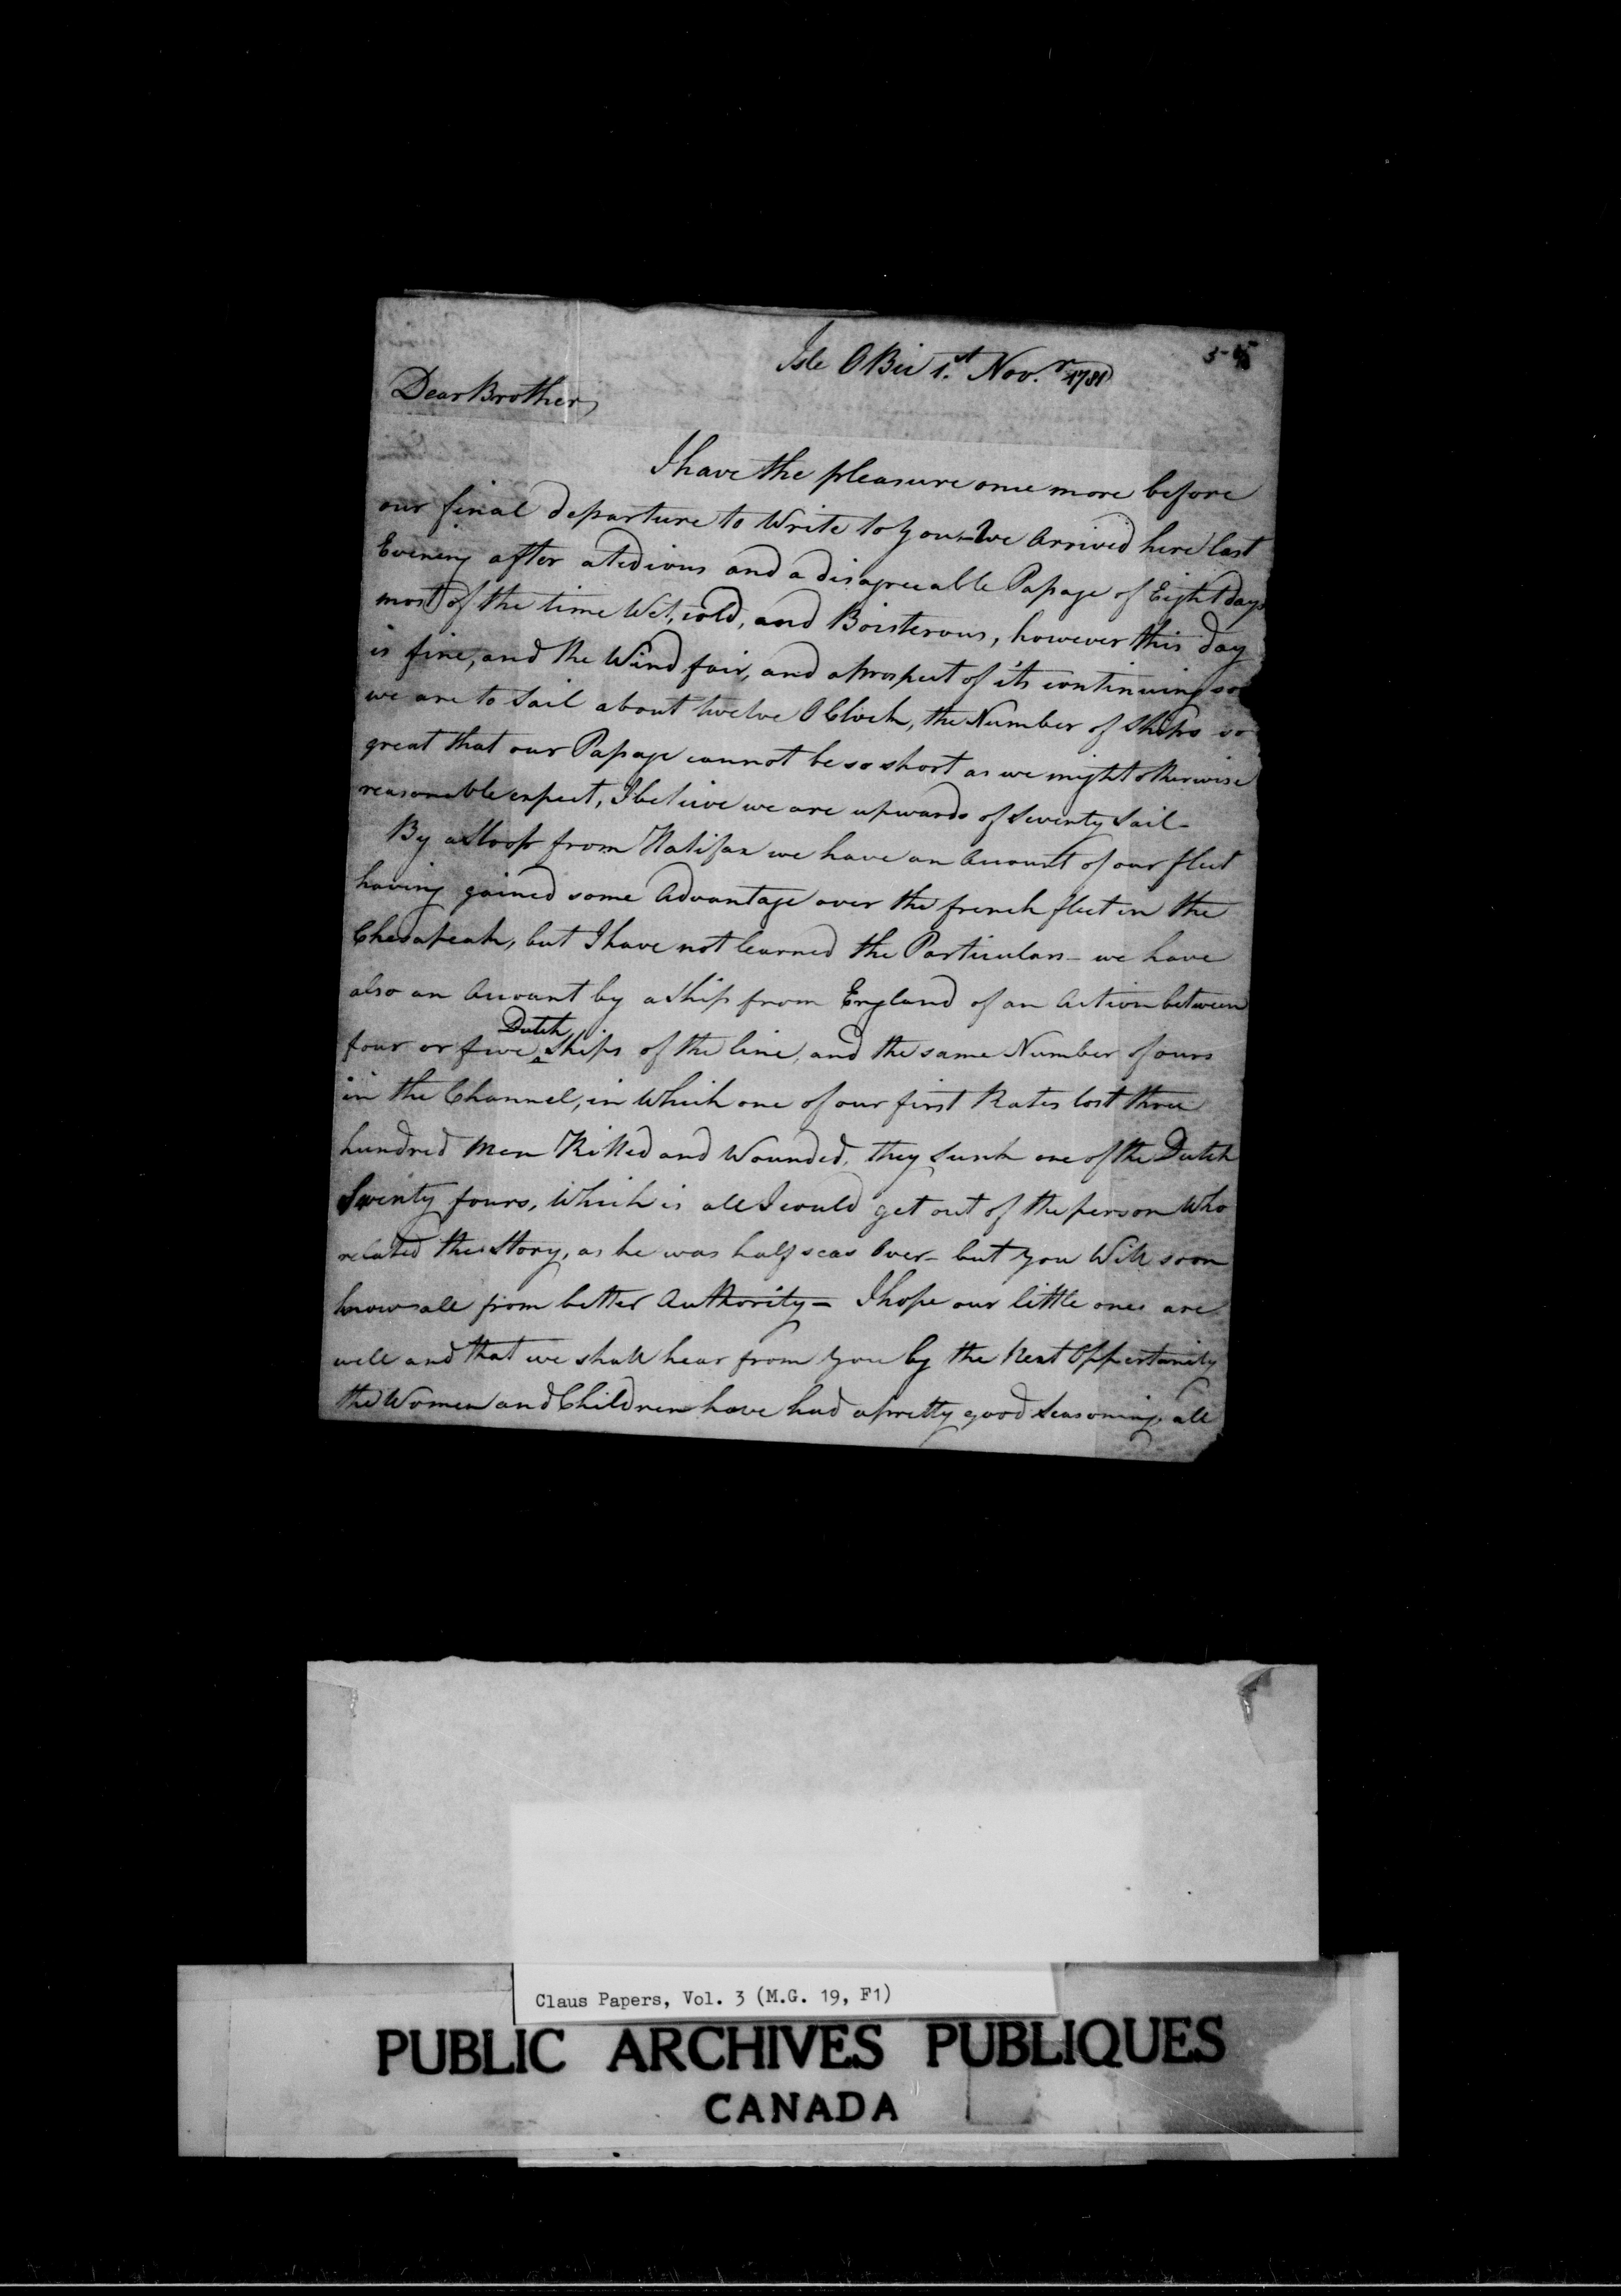 Isle O Bic 1.st Nov.r 1781
Dear Brother,
I have the pleasure once more before
our final departure to Write to you - We Arrived here last
Evening after a tedious and a disagreeable Passage of Eight days
most of the time Wet, cold, and Boisterous, however this day
is fine, and the Wind fair, and a prospect of its continuing so
we are to Sail about twelve O Clock, the Number of Ships so
great that our Passage cannot be so short as we might otherwise
reasonable expect, I believe we are upwards of Seventy Sail -
By a Sloop from Halifax we have an Account of our fleet
having gained some Advantage over the french fleet in the
Chesapeak, but I have not learned the Particulars - we have
also an Account by a Ship from England of an Action between
Dutch
four or five ^ Ships of the line, and the same Number of ours
in the Channel, in Which one of our first Rates lost three
hundred Men Killed and Wounded, they sunk one of the Dutch
Seventy fours, Which is all I could get out of the person Who
related the Story, as he was half seas Over - but you Will soon
know all from better Authority - I hope our little ones are
well and that we shall hear from you by the Next Oppertunity
the Women and Children have had a pretty good Seasoning, all
Claus Papers, Vol. 3 (M.G. 19, F1)
PUBLIC ARCHIVES PUBLIQUES
CANADA